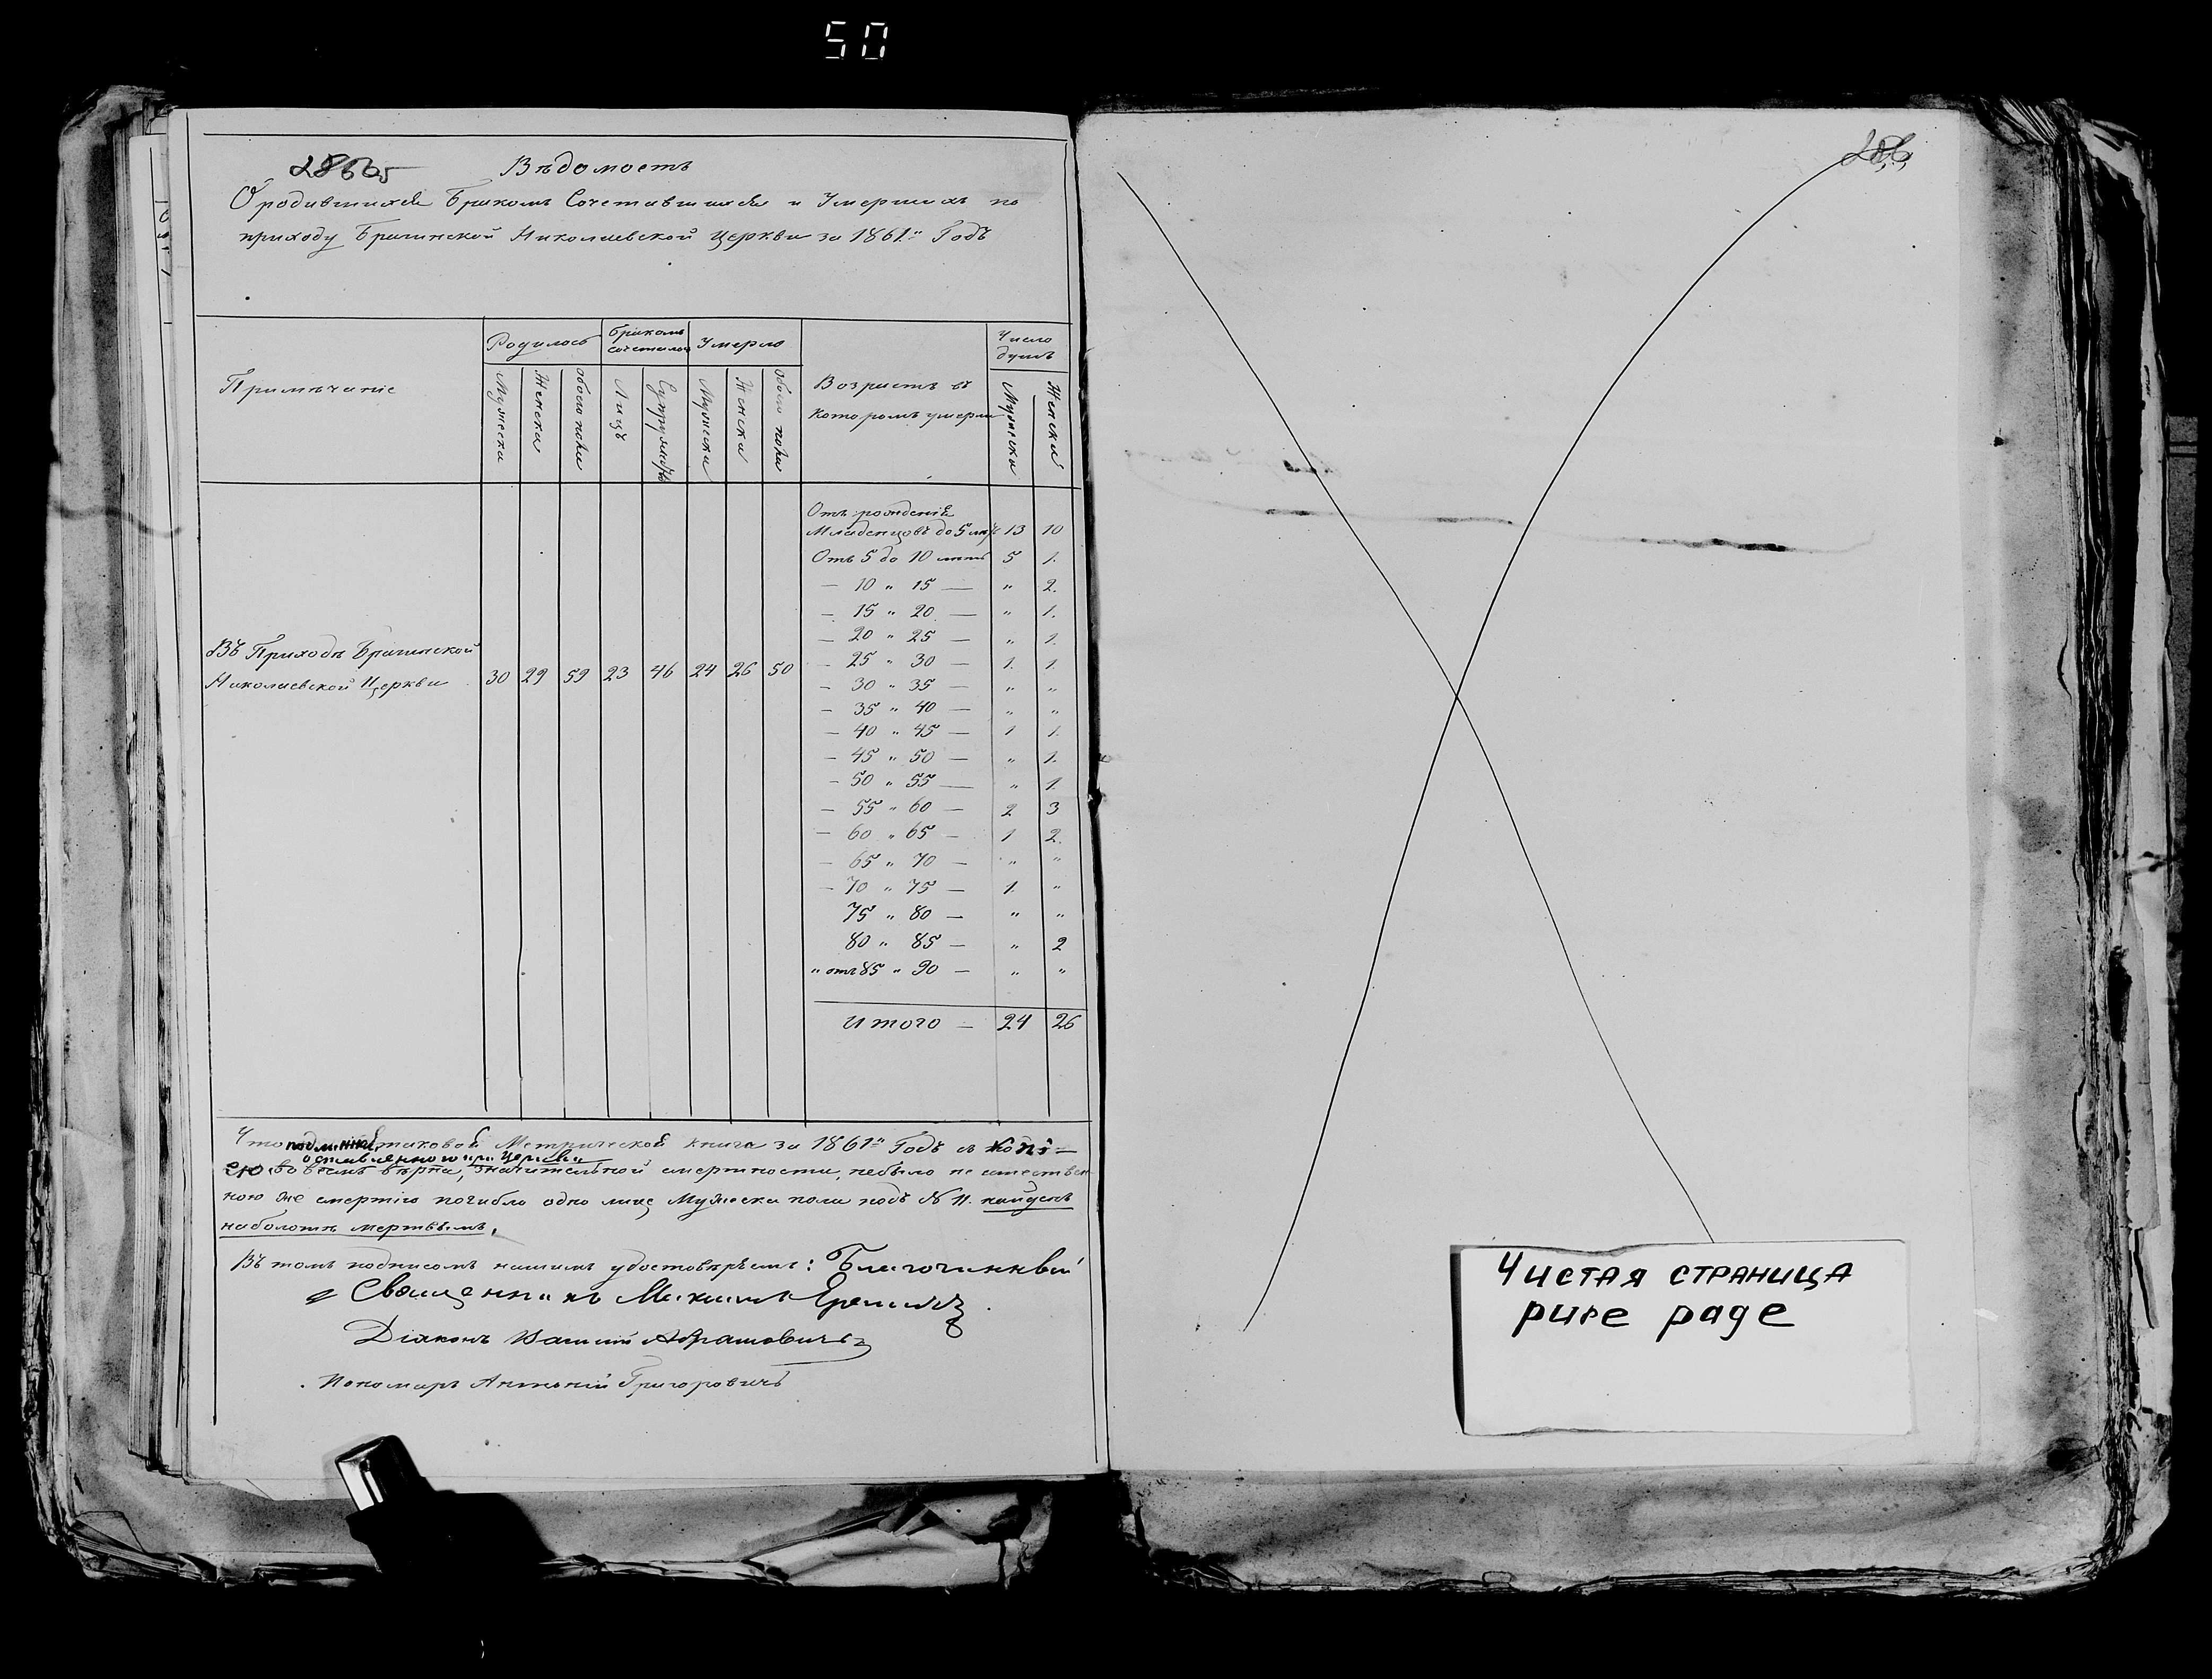 50
Вѣдомость
О родившихся Бракомъ Сочетавшихся и Умершихъ по
приходу Брагинской Николаевской Церкви за 1861й Годъ
Примѣчаніе
Родилось
Бракомъ сочеталось
Умерло
Возрастъ въ
которомъ умерли
Число
душъ
Мужеска
Женска
обоего пола
Лицъ
Супружествъ
Мужеска
Женска
обоего пола
Мужеска
Женска
Въ Приходѣ Брагинской
Николаевской Церкви
30 29 59 23 46 24 26 50
Отъ рожденія
Младенцовъ до 5 лѣтъ 13 10
Отъ 5 до 10 лѣтъ 5 1.
— 10 " 15 — " 2.
— 15 " 20 — " 1.
— 20 " 25 — " 1.
— 25 " 30 — 1. 1.
— 30 " 35 — " "
— 35 " 40 — " "
— 40 " 45 — 1 1.
— 45 " 50 — " 1.
— 50 " 55 — " 1.
— 55 " 60 — 2 3
— 60 " 65 — 1 2.
— 65 " 70 — " "
— 70 " 75 — 1. "
75 " 80 — " "
80 " 85 — " 2
" отъ 85 " 90 — " "
Итого — 24 26
Что подлинной таковой Метрической книга за 1861й Годъ съ копі-
оставленною при церкви
ею во всемъ вѣрна, значительной смертности небыло не естествен-
ною же смертію погибло одно лице Мужеска пола подъ № 11. найденъ
наболотѣ мертвымъ.
Въ томъ подписомъ нашимъ удостовѣряемъ: Благочинный
Священникъ Максимъ
Діаконъ Василій Абрамовичъ
Пономарь Антоній Григоровичъ
Чистая страница
pure page